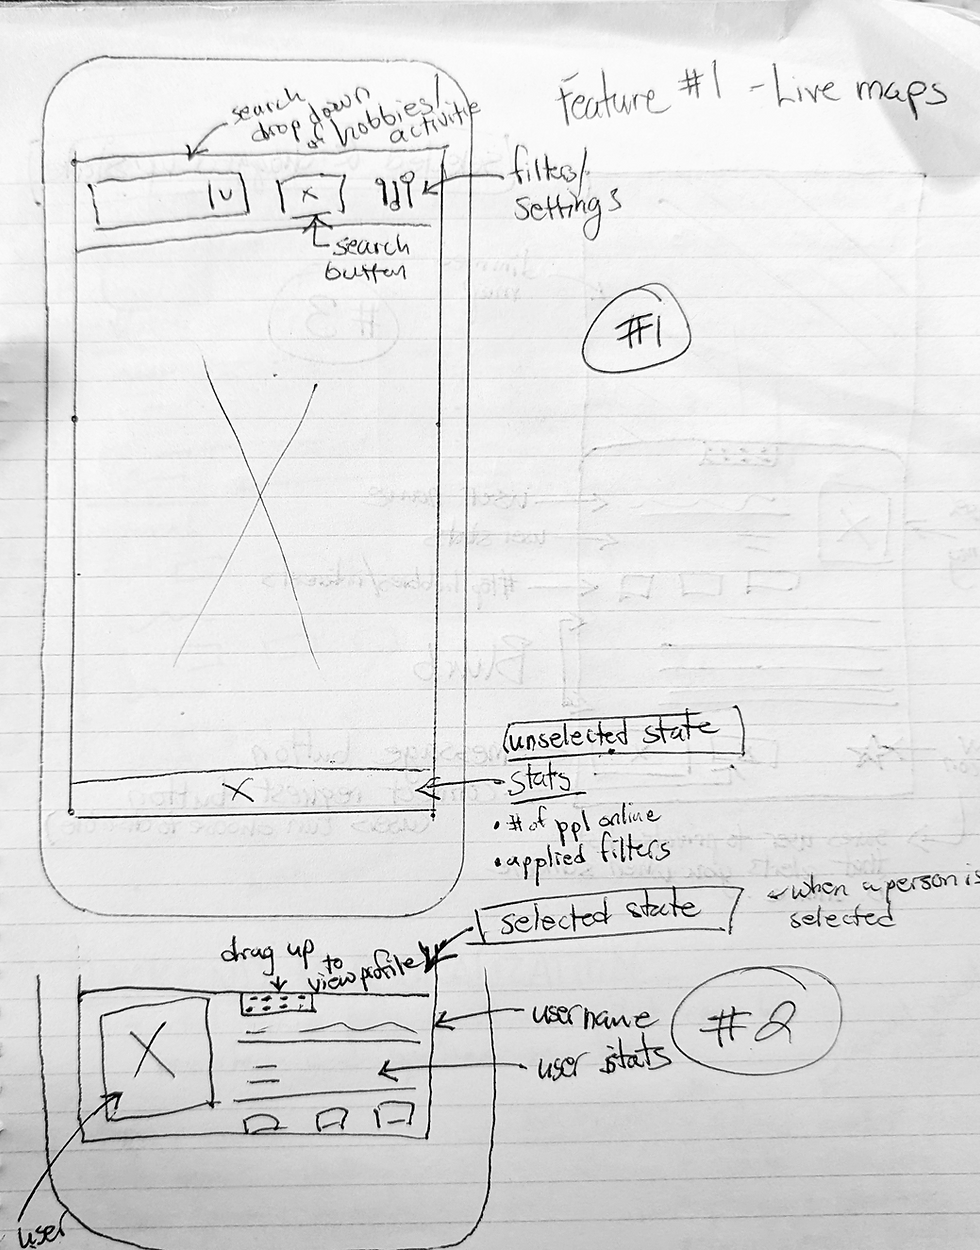 Feature #1 - Live maps
search
drop down
of hobbies/
activitie
filters/
settings
search
button
#1
unselected state
stats
• # of ppl online
• applied filters
selected state
when a person is
selected
drag up
to
view profile
username
user stats
#2
user